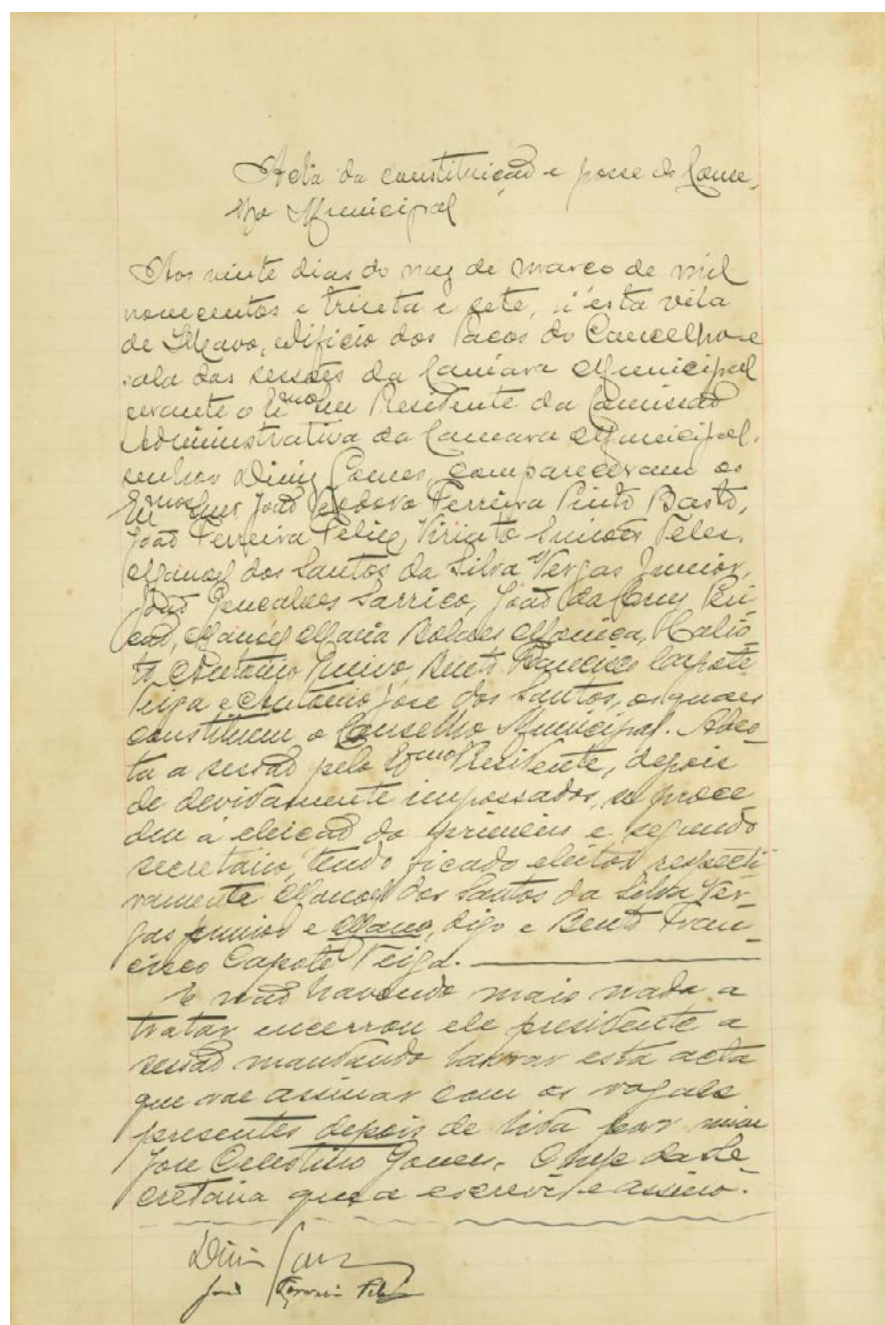 Acta da constituição e posse do Conse-
lho Municipal
Aos vinte dias do mez de março de mil
novecentos e trinta e sete, n'esta vila
de Ilhavo, edificio dos Paços do Concelho e
sala das sessões da Camara Municipal
perante o Exmo Snr Presidente da Comissão
Administrativa da Camara Municipal,
senhor Diniz Gomes, compareceram os
Exmos Snrs João Teodoro Ferreira Pinto Basto,
João Ferreira Felix, Viriato Simões Teles,
Manoel dos Santos da Silva Vergas Junior,
João Gonçalves Sarrico, João da Cruz Peri-
cão, Manoel Maria Bolaes Monica, Calis-
to Antonio Ruivo, Bento Francisco Capote
Teiga e Antonio José dos Santos, os quaes
constituem o Conselho Municipal. Aber-
ta a sessão pelo Exmo Presidente, depois
de devidamente impossados, se proce-
deu á eleição do primeiro e segundo
secretario, tendo ficado eleitos respecti-
vamente Manoel dos Santos da Silva Ver-
gas Junior e Mano, digo e Bento Fran-
cisco Capote Teiga.
E não havendo mais nada a
tratar encerrou ele presidente a
sessão mandando lavrar esta acta
que vae assinar com os vogaes
presentes depois de lida por mim
José Celestino Gomes, Chefe da Se-
cretaria que a escrevi e assino.
Diniz Gomes
João Ferreira Felix